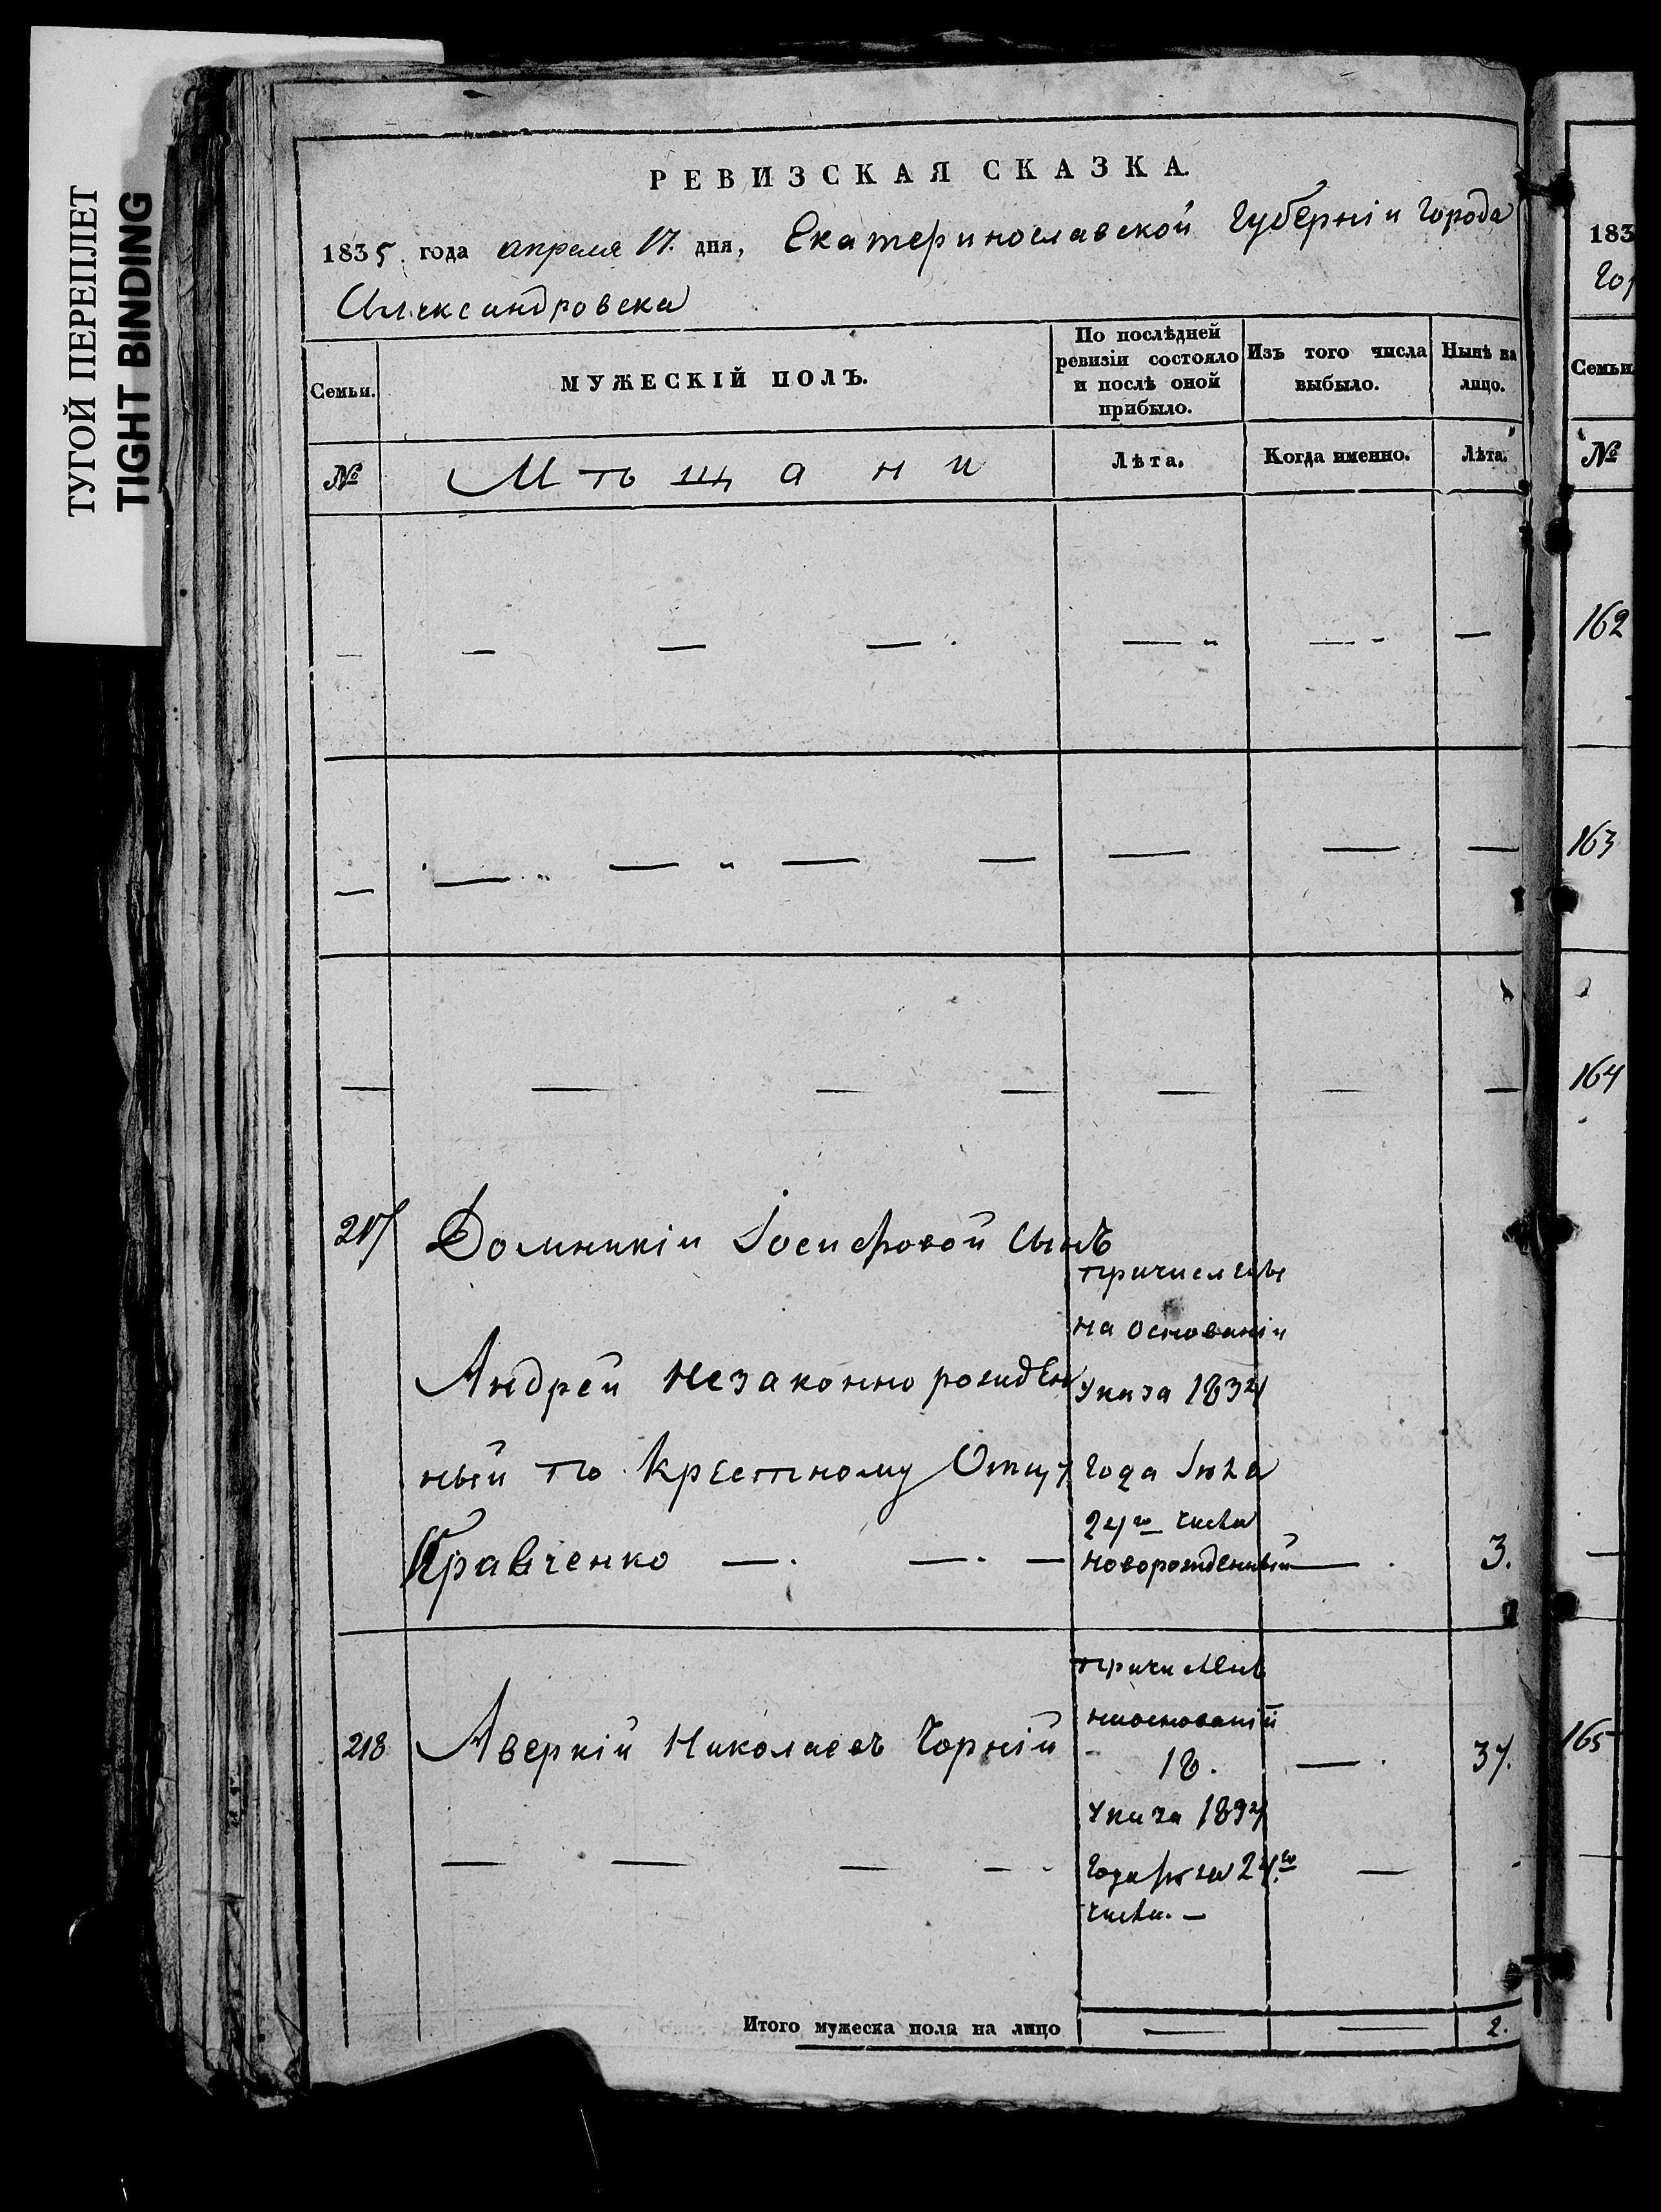 ТУГОЙ ПЕРЕПЛЕТ
TIGHT BINDING
РЕВИЗСКАЯ СКАЗКА.
1835 года апреля 17. дня, Екатеринославской Губерніи Города
Александровска
Семьи.
МУЖЕСКІЙ ПОЛЪ.
По послѣдней
ревизіи состояло
и послѣ оной
прибыло.
Изъ того числа
выбыло.
Нынѣ на
лицо.
№
Мѣщани
Лѣта.
Когда именно.
Лѣта.
— — — . — „ — - —
— — „ — „ — — — — —
— — — — — — —
217 Домникіи Іосифовой Сынъ
Андрей незаконнорожден
ный по Крестному Отцу
Кравченко —. —. —
причислены
на основаніи
Указа 1832
Года
24го числа
новорожденный
— .
3.
218 Аверкій Николаевъ Чорній
— — — —
причисленъ
наоснованіи
18.
Указа 1832
Года 24.го
числа. —
— .
—
37.
Итого мужеска пола на лицо — — 2.
183
Гор
Семьи
№
162
163
164
—
165